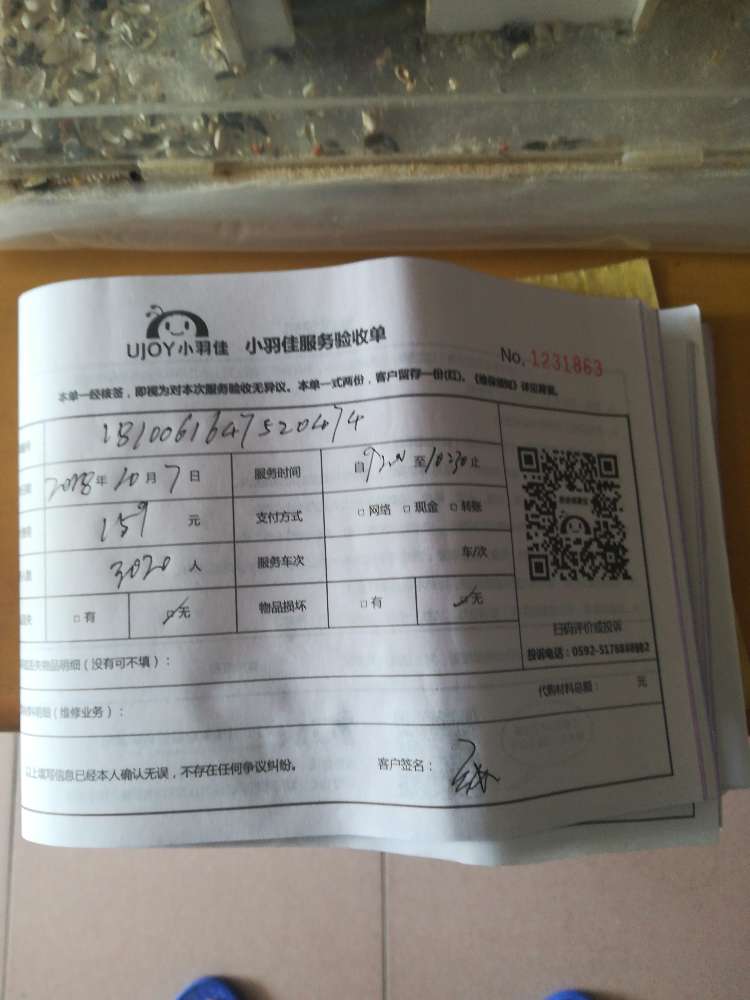 UJOY小羽佳 小羽佳服务验收单
No. 1231863
本单一经核签，即视为对本次服务验收无异议。本单一式两份，客户留存一份(红)。
1810061647520474
2018年10月7日 服务时间 自 至10:30止
159 元 支付方式 □网络 □现金 □转账
3020 人 服务车次 车/次
□有 □无 物品损坏 □有 □无
扫码评价或投诉
物品明细（没有可不填）：
代购材料总额： 元
明细（维修业务）：
以上填写信息已经本人确认无误，不存在任何争议纠纷。 客户签名：